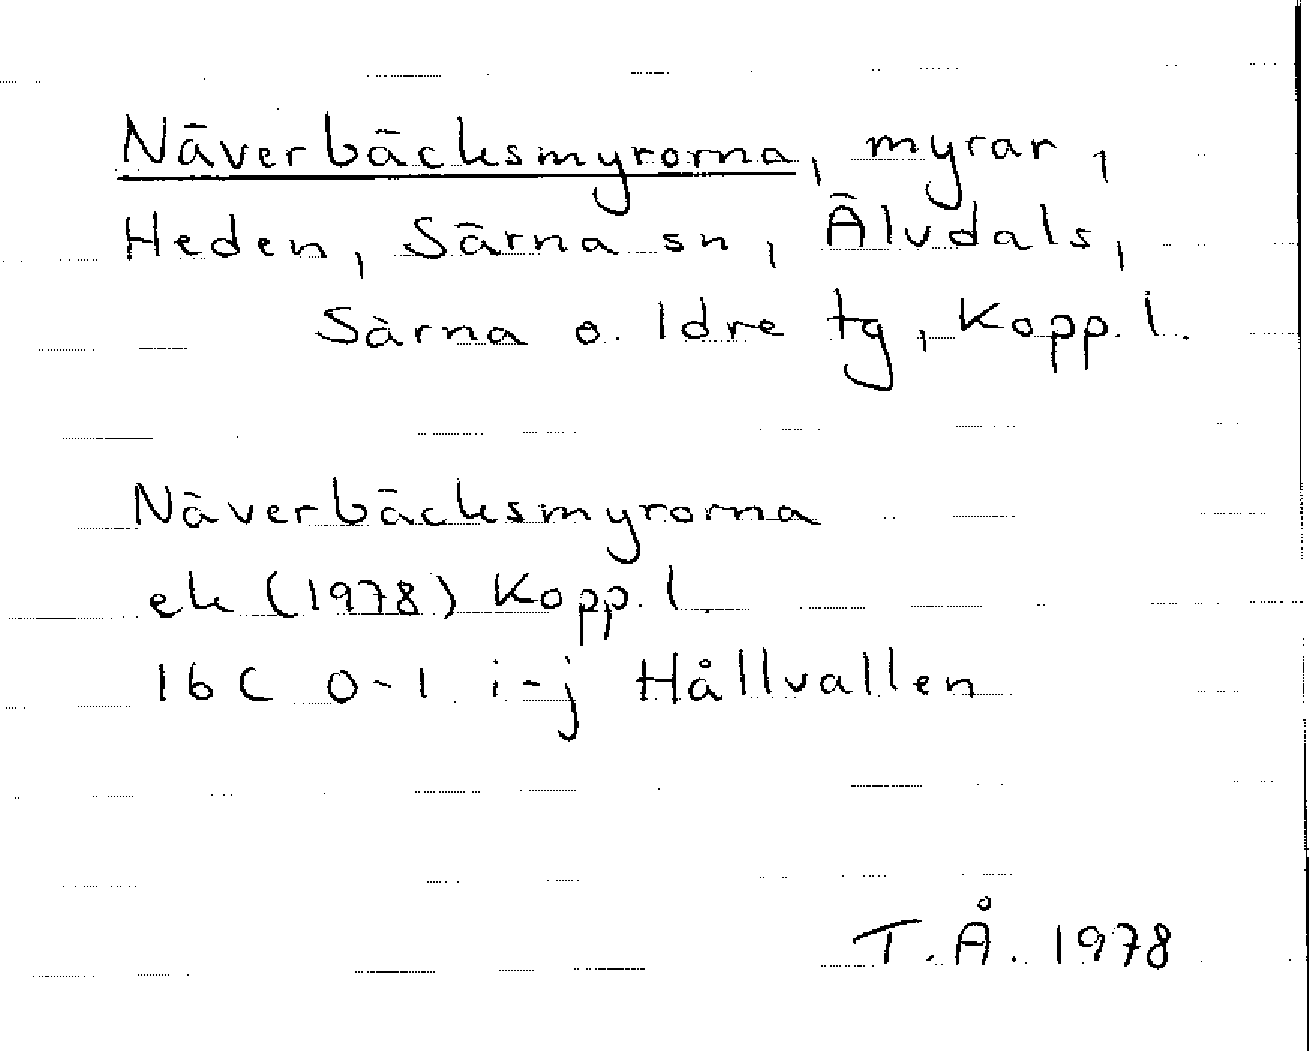 Näverbäcksmyrorna, myrar,
Heden, Särna sn, Älvdals,
Särna o. Idre tg, Kopp. l.
Näverbäcksmyrorna
ek (1978) Kopp. l.
16 C 0-1 i-j Hållvallen
T.Å. 1978